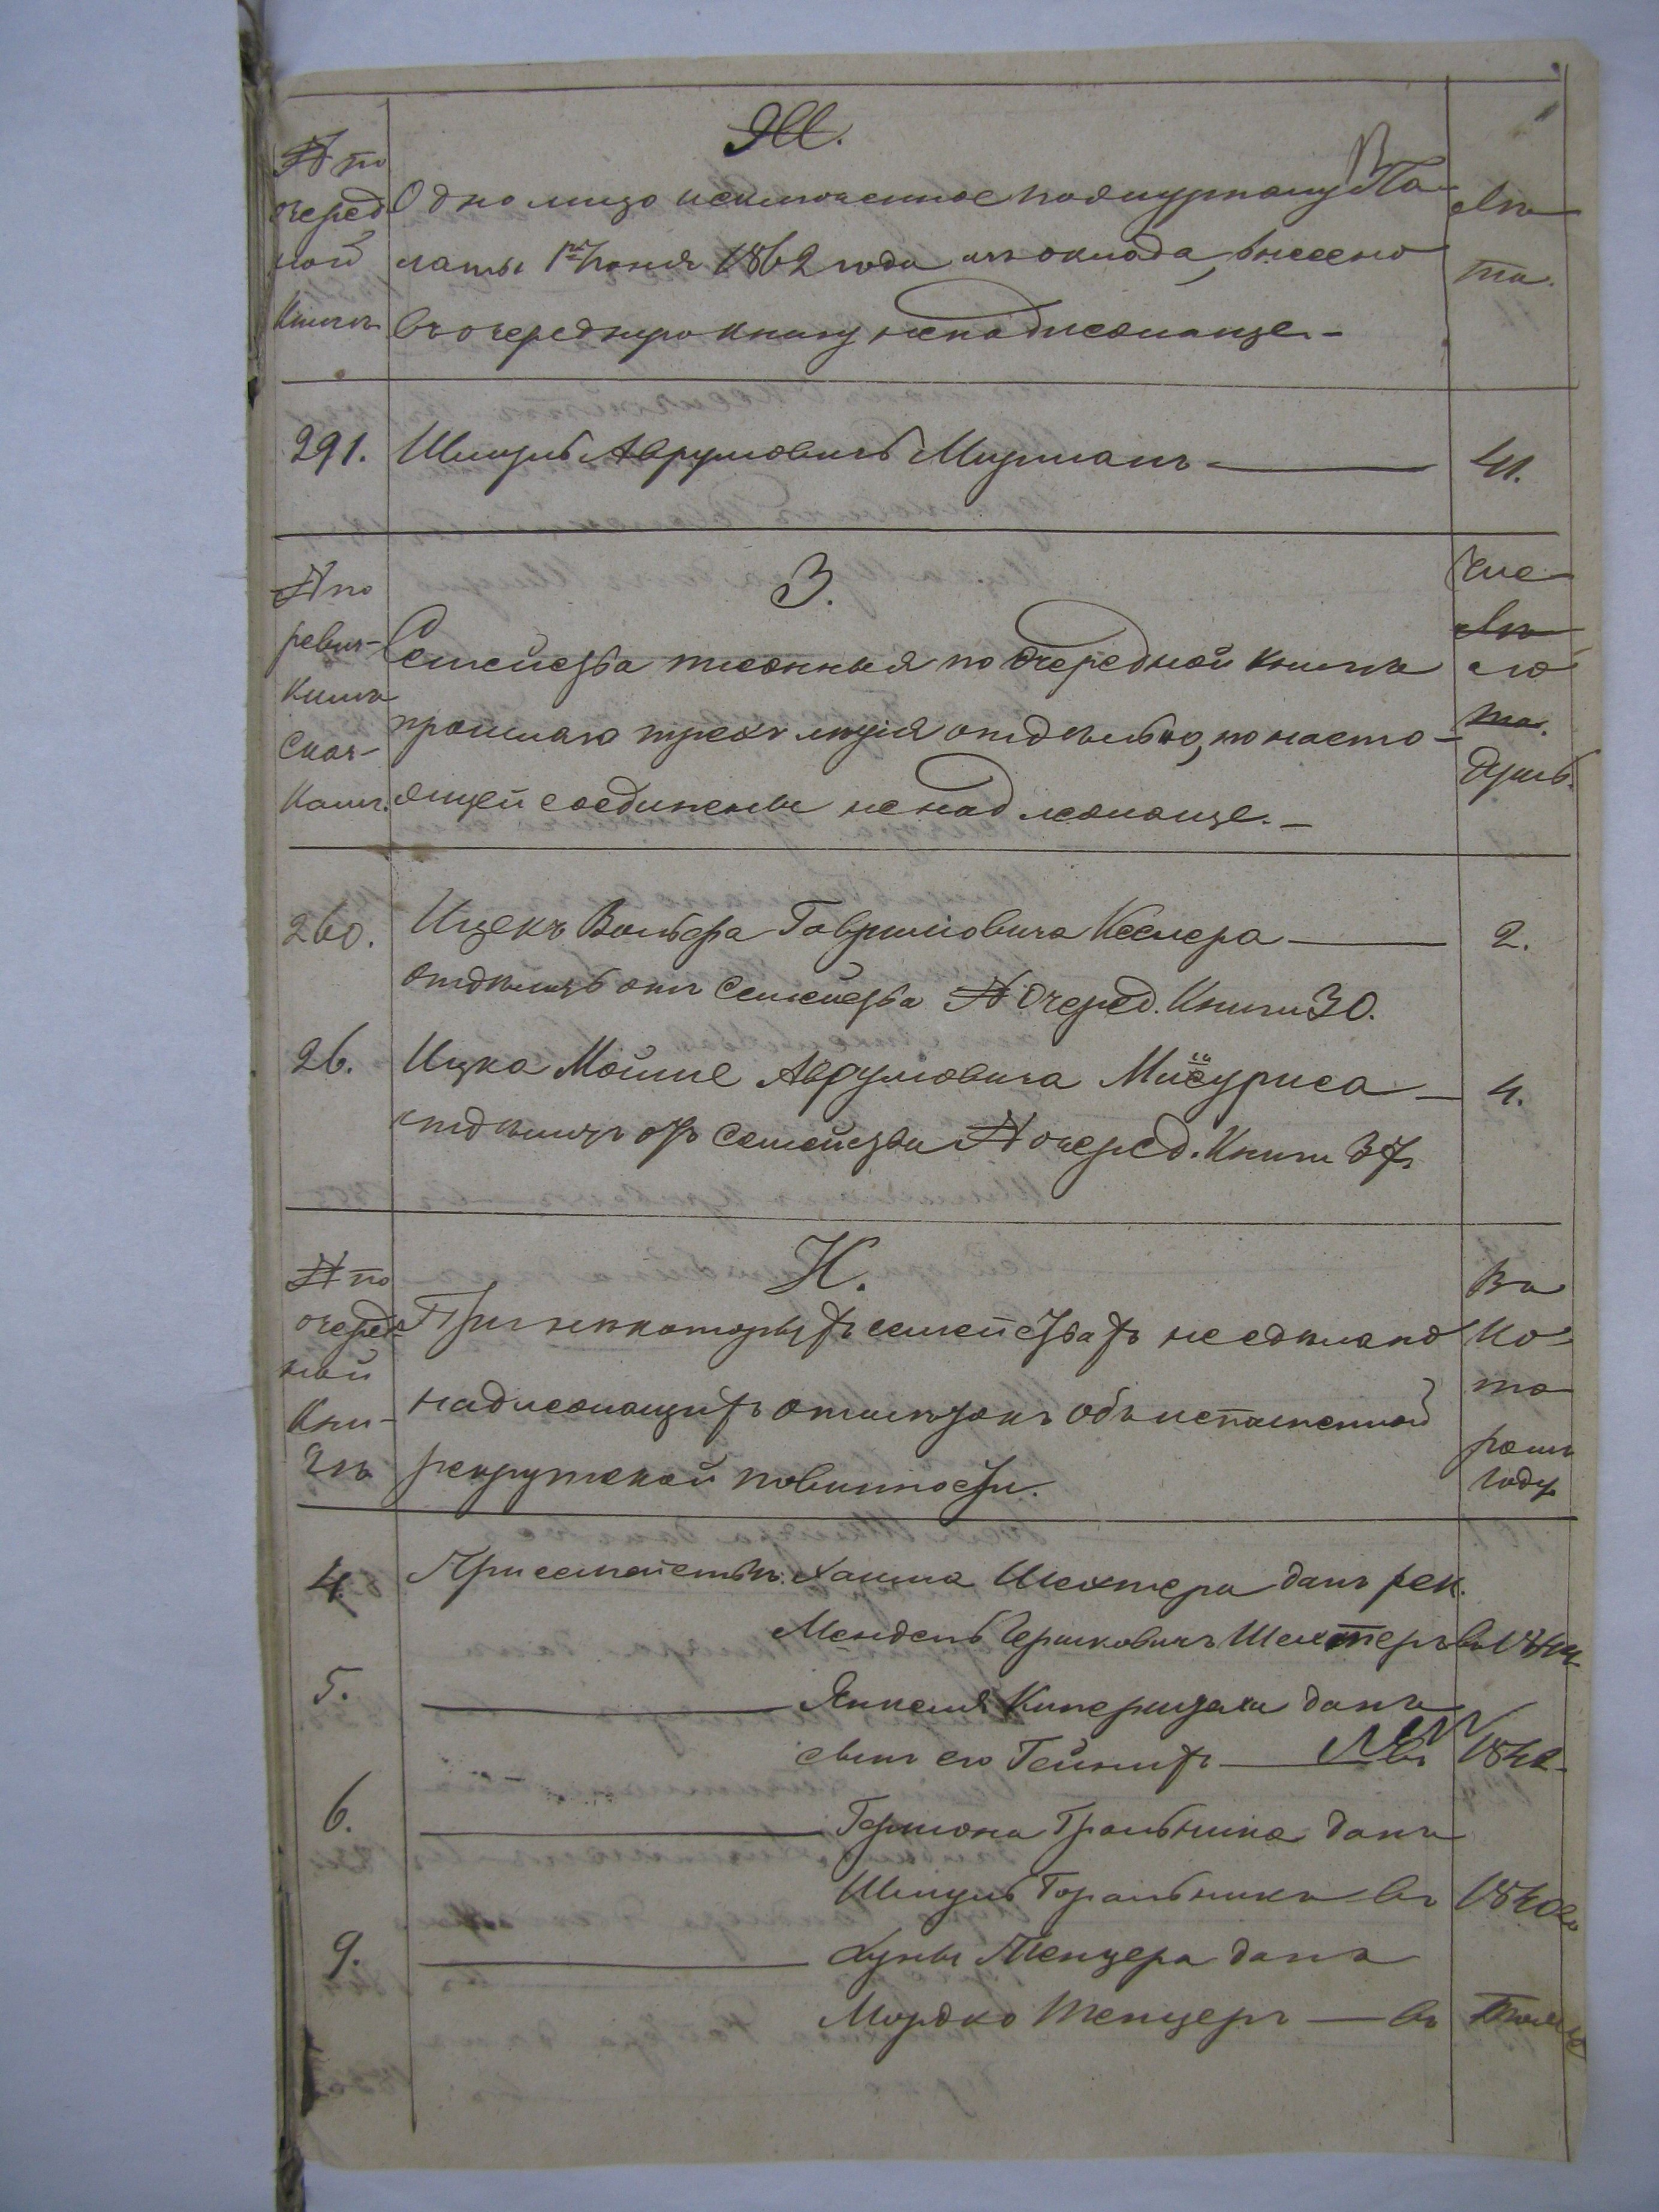 Ж.
№ по очередной книгѣ
Одно лицо исключенное по журналу К. Палаты 1го Іюня 1862 года изъ оклада, внесено въ очередную книгу ненадлежаще.-
Лѣта.
291. Шмуль Аврумовичъ Мирманъ 41.
З.
№ по ревиз- книгѣ Сказкамъ.
Семейства писанныя по очередной книгѣ
прошлаго трехъ лѣтія отдѣльно, по насто-
ящей соединены не надлежаще.-
Число душъ.
260. Ицекъ Вольфа Гавриловича Кесмера 2.
отдѣлить отъ Семейства № Очеред. Книги 30.
26. Ицка Мойше Аврумовича Мисуриса 4.
отдѣлить отъ Семейства № очеред. Книги 37.
И.
№ по очередной Книгѣ
При нѣкоторыхъ семействахъ не сдѣлано
надлежащихъ отмѣтокъ объ исполненной
рекрутской повинности.
Въ которомъ году
4. При семействѣ Хаима Шехтера данъ рек.
Мендель Гершковичъ Шехтеръ въ
5. Янкеля данъ
сынъ его въ
6. Гершона данъ
Шмуль Горальникъ въ 1840го
9. Хуны Тепцера данъ
Мордко Тепцеръ въ